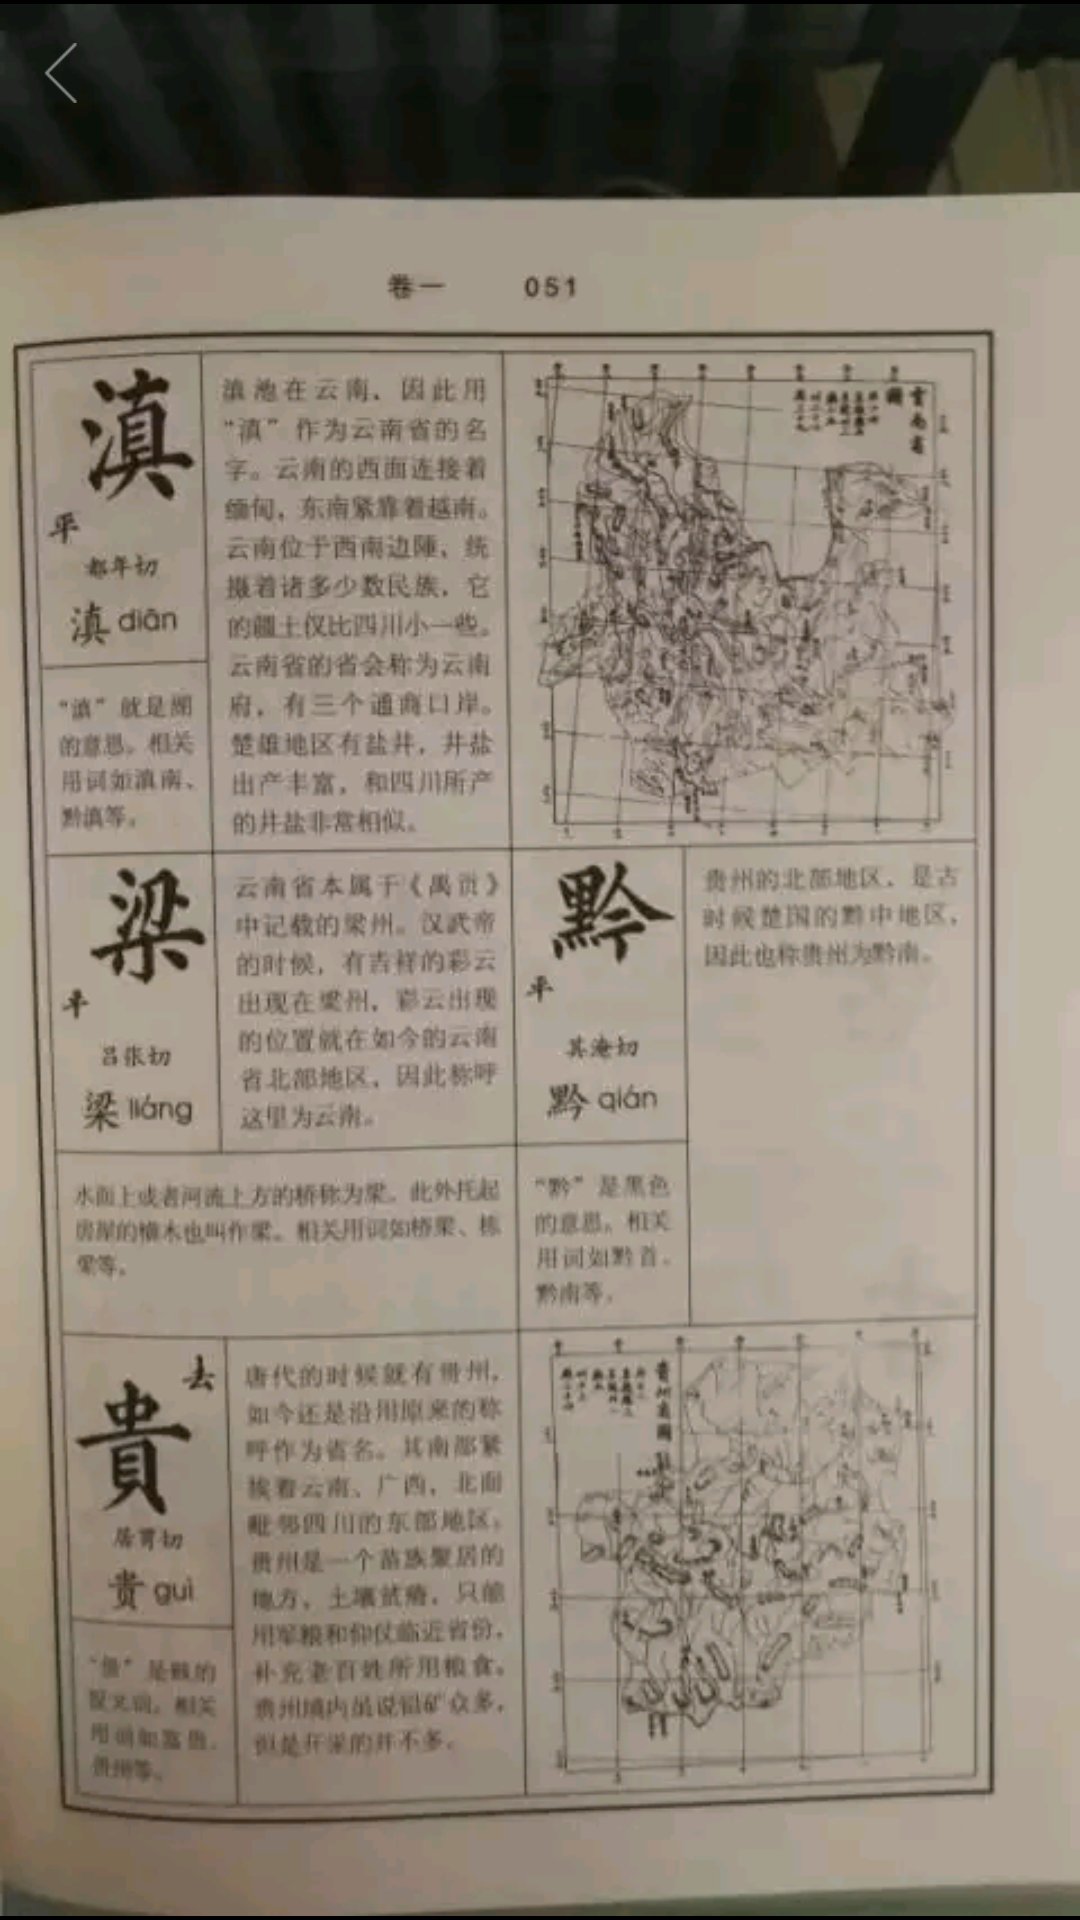 卷一 051
滇
平
都年切
滇 diān
“滇”就是湖
的意思。相关
用词如滇南、
黔滇等。
滇池在云南，因此用
“滇”作为云南省的名
字。云南的西面连接着
缅甸，东南紧靠着越南。
云南位于西南边陲，统
摄着诸多少数民族，它
的疆土仅比四川小一些。
云南省的省会称为云南
府，有三个通商口岸。
楚雄地区有盐井，井盐
出产丰富，和四川所产
的井盐非常相似。
雲南省
圖
梁
平
吕张切
梁 liáng
云南省本属于《禹贡》
中记载的梁州。汉武帝
的时候，有吉祥的彩云
出现在梁州，彩云出现
的位置就在如今的云南
省北部地区，因此称呼
这里为云南。
水面上或者河流上方的桥称为梁。此外托起
房屋的横木也叫作梁。相关用词如桥梁、栋
梁等。
黔
平
其淹切
黔 qián
“黔”是黑色
的意思。相关
用词如黔首、
黔南等。
贵州的北部地区，是古
时候楚国的黔中地区，
因此也称贵州为黔南。
貴
去
居胃切
贵 guì
“贵”是贱的
反义词。相关
用词如富贵、
贵州等。
唐代的时候就有贵州，
如今还是沿用原来的称
呼作为省名。其南部紧
挨着云南、广西，北面
毗邻四川的东部地区。
贵州是一个苗族聚居的
地方，土壤贫瘠，只能
用军粮和仰仗临近省份，
补充老百姓所用粮食。
贵州境内虽说铅矿众多，
但是开采的并不多。
貴州省圖